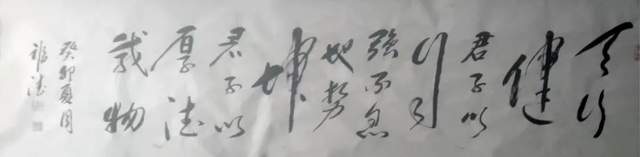 天行
健
君子以
自
强不息
地势
坤
君子以
厚德
载物
癸卯夏月